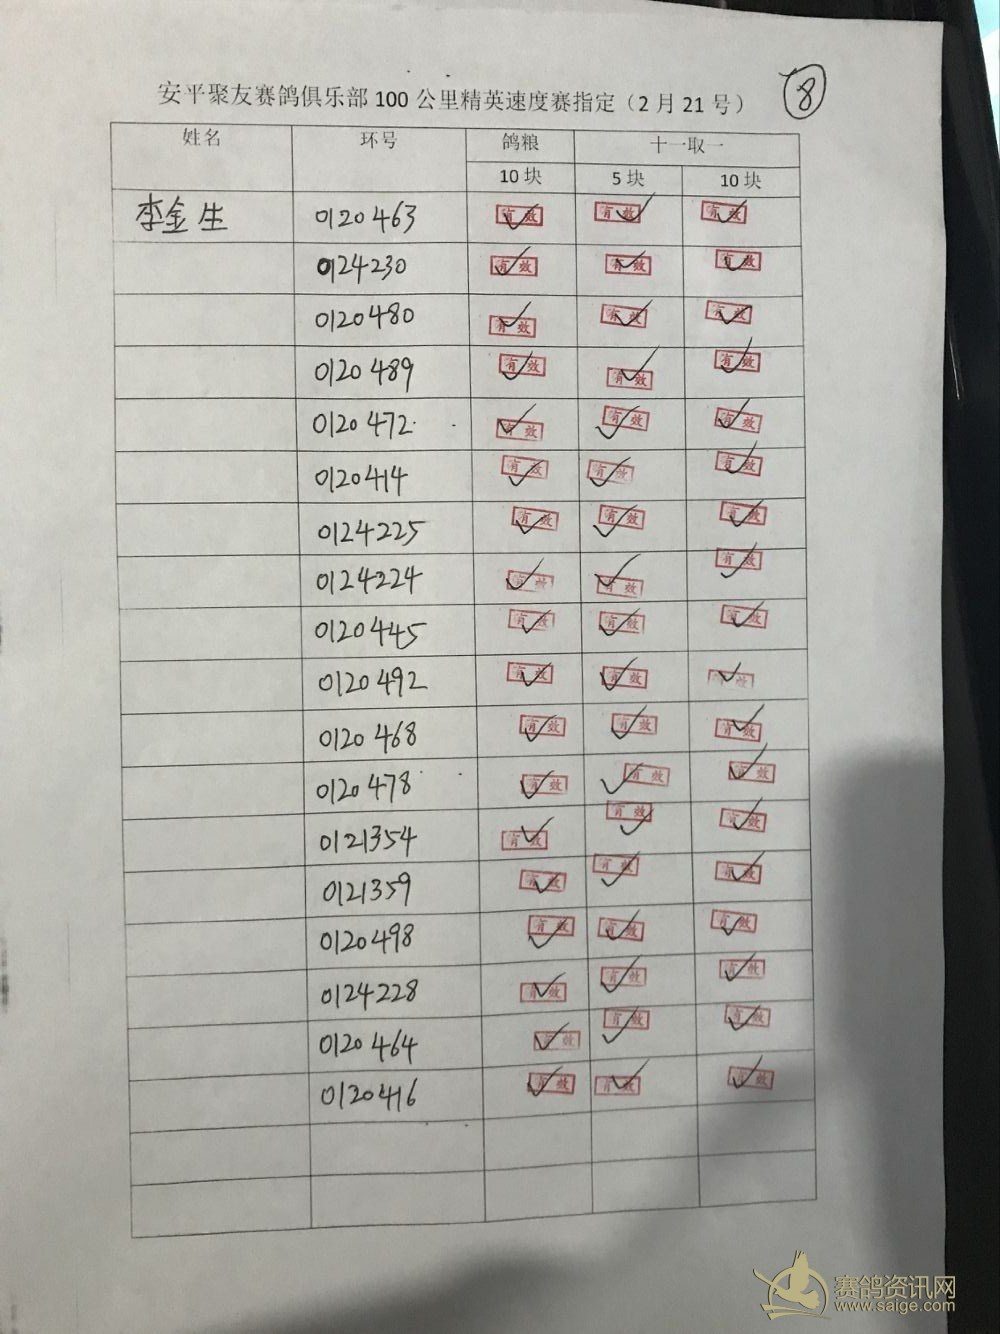 安平聚友赛鸽俱乐部 100 公里精英速度赛指定（2 月 21 号） 8
姓名 环号 鸽粮 十一取一
10 块 5 块 10 块
李金生 0120463 有效 有效 有效
0124230 有效 有效 有效
0120480 有效 有效 有效
0120489 有效 有效 有效
0120472 有效 有效 有效
0120414 有效 有效 有效
0124225 有效 有效 有效
0124224 有效 有效 有效
0120445 有效 有效 有效
0120492 有效 有效 有效
0120468 有效 有效 有效
0120478 有效 有效 有效
0121354 有效 有效 有效
0121359 有效 有效 有效
0120498 有效 有效 有效
0124228 有效 有效 有效
0120464 有效 有效 有效
0120416 有效 有效 有效
赛鸽资讯网
www.saige.com